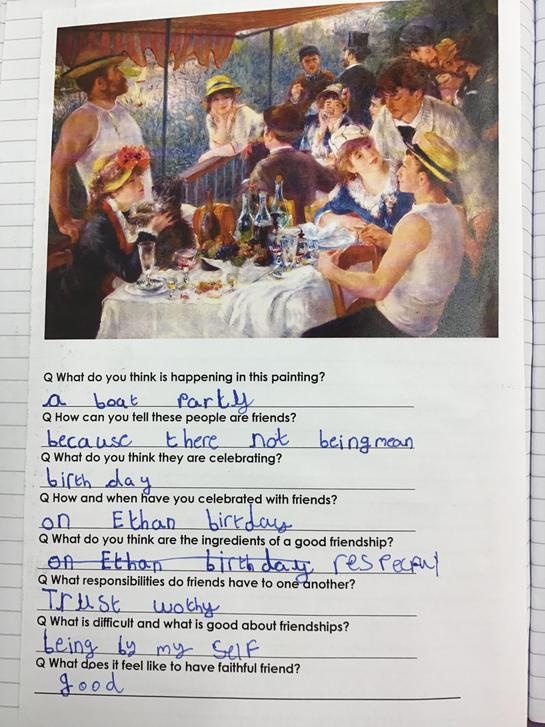 Q What do you think is happening in this painting?
a boat Party
Q How can you tell these people are friends?
because there not being mean
Q What do you think they are celebrating?
birth day
Q How and when have you celebrated with friends?
on Ethan birtday
Q What do you think are the ingredients of a good friendship?
on Ethan birthday respecful
Q What responsibilities do friends have to one another?
Trust wothy
Q What is difficult and what is good about friendships?
being by my self
Q What does it feel like to have faithful friend?
good